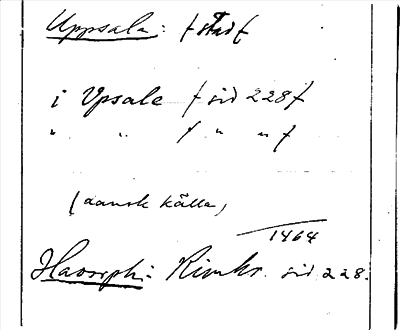 Uppsala: f stad f
i Upsale f sid 228 f
" " f " " f
(dansk källa)
1464
Havorph: Rimkr. sid 228.